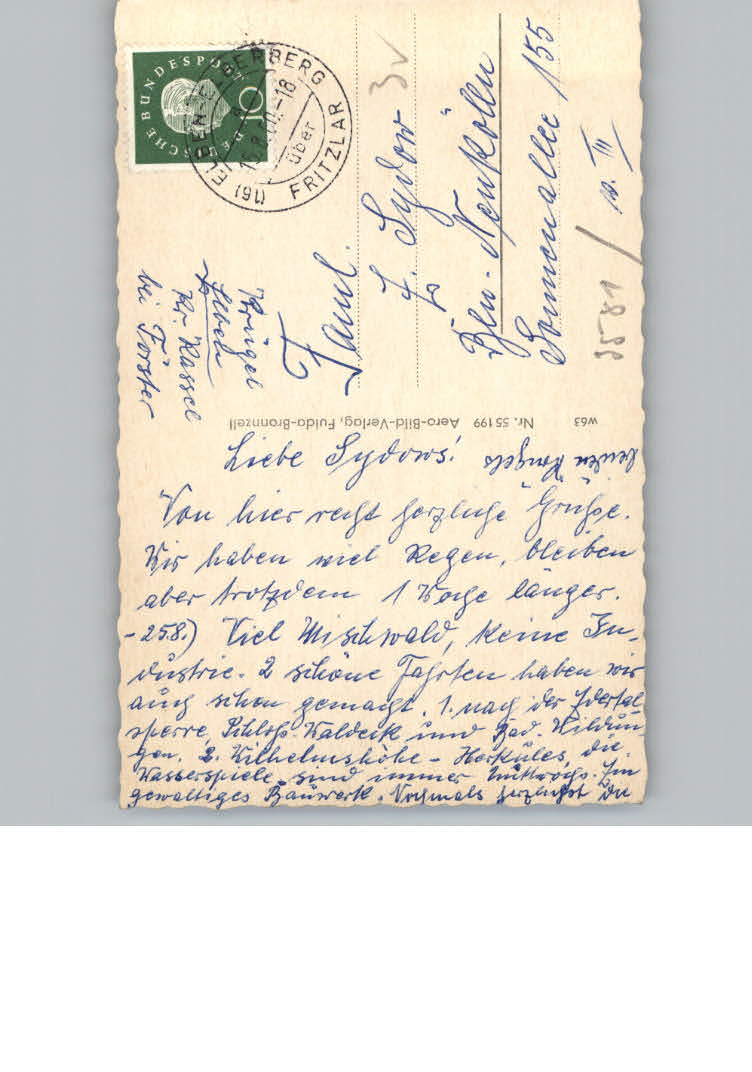 DEUTSCHE BUNDESPOST
10
(16) ELBEN
BERBERG
über FRITZLAR
-18
3v
Krügel
Elben
Kr. Kassel
bei Förster
Faml.
F. Sydow
Bln.-Neukölln
Sonnenallee 155
v. III
3581
W63 Nr. 55 199 Aero-Bild-Verlag, Fulda-Bronnzell
Liebe Sydows!
Von hier recht herzliche Grüße.
Wir haben viel Regen, bleiben
aber trotzdem 1 Woche länger.
-25.8.) Viel Mischwald, keine In-
dustrie. 2 schöne Fahrten haben wir
auch schon gemacht. 1. nach der Edertal-
sperre, Schloß-Waldeck und Bad-Wildun-
gen. 2. Wilhelmshöhe - Herkules, die
Wasserspiele sind immer Mittwochs. Ein
gewaltiges Bauwerk. Nochmals herzlichst Die